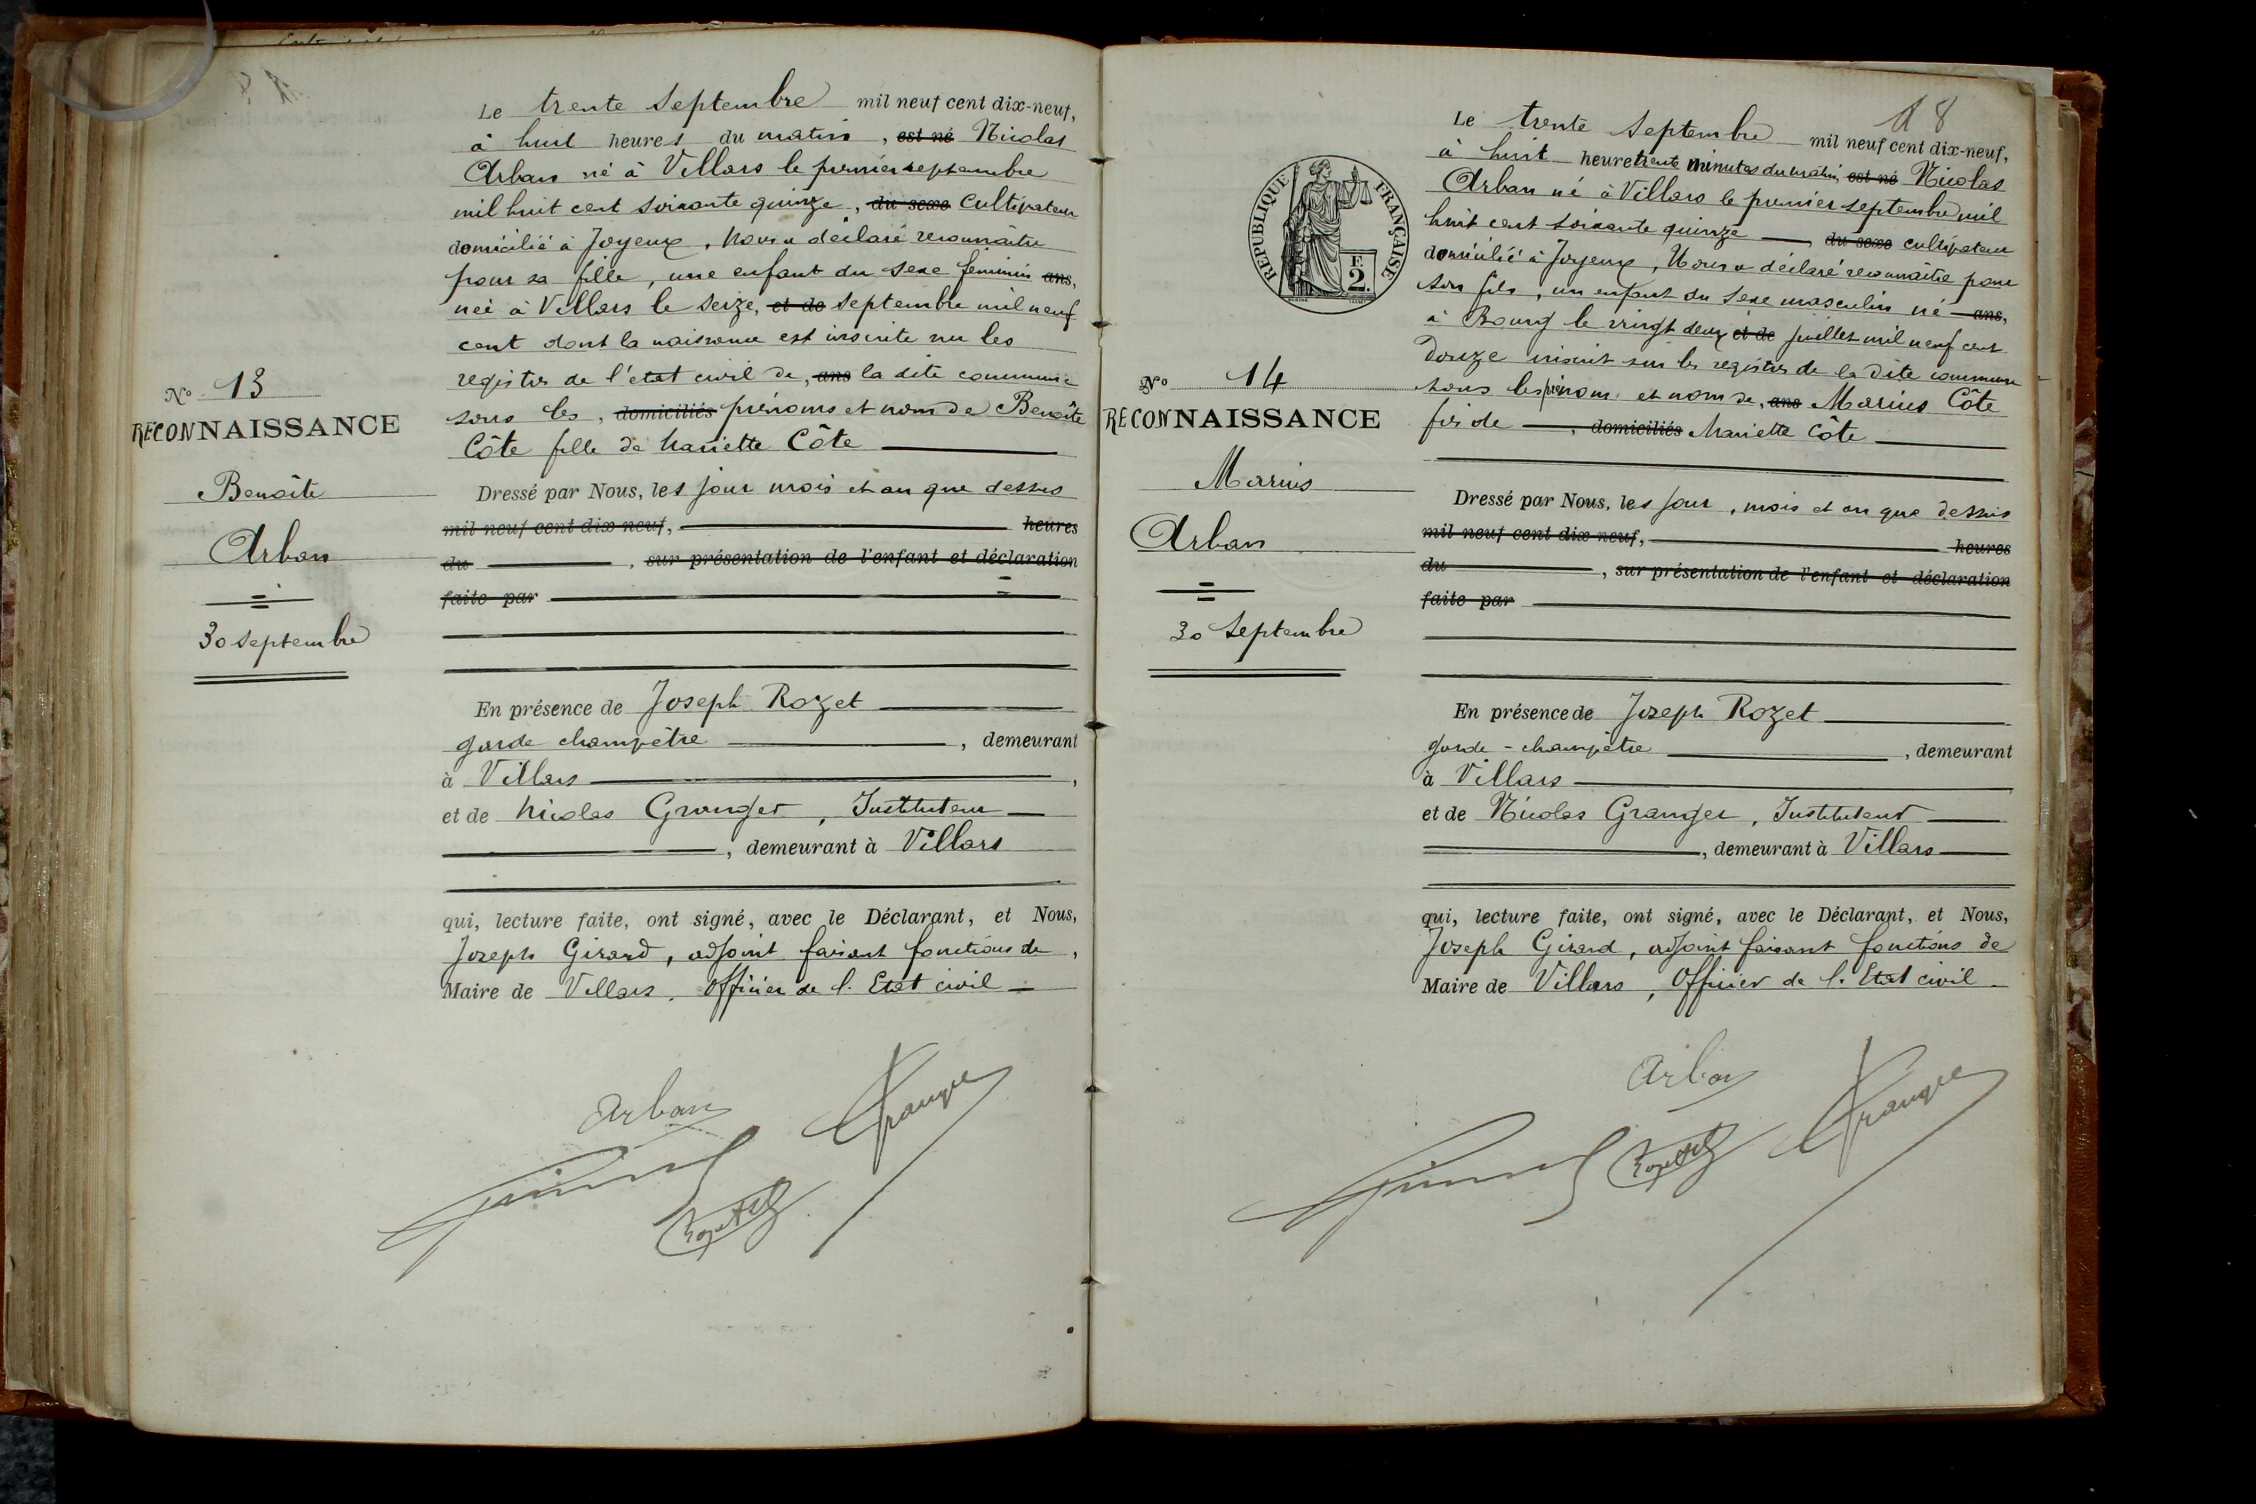 Le trente septembre mil neuf cent dix-neuf,
à huit heures du matin, est né Nicolas
Arban né à Villars le premier septembre
mil huit cent soixante quinze, du sexe cultivateur
domicilié à Joyeux, Nous a déclaré reconnaître
pour sa fille, une enfant du sexe féminin ans,
née à Villars le seize, et de septembre mil neuf
cent dont la naissance est inscrite sur les
registres de l'état civil de, ans la dite commune
sous les, domiciliés prénoms et nom de Benoîte
Côte fille de Mariette Côte
No 13
RECONNAISSANCE
Benoîte
Arban
30 septembre
Dressé par Nous, les jour mois et an que dessus
mil neuf cent dix neuf, heures
du , sur présentation de l'enfant et déclaration
faite par
En présence de Joseph Rozet
garde champêtre , demeurant
à Villars ,
et de Nicolas Granger, Instituteur
, demeurant à Villars
qui, lecture faite, ont signé, avec le Déclarant, et Nous,
Joseph Girard, adjoint faisant fonctions de ,
Maire de Villars, Officier de l'Etat civil
Arban
18
RÉPUBLIQUE FRANÇAISE
F.
2.
Le trente septembre mil neuf cent dix-neuf,
à huit heure trente minutes du matin, est né Nicolas
Arban né à Villars le premier septembre mil
huit cent soixante quinze , du sexe cultivateur
domicilié à Joyeux, Nous a déclaré reconnaître pour
son fils, un enfant du sexe masculin né ans,
à Bourg le vingt deux et de juillet mil neuf cent
douze inscrit sur les registres de la dite commune
sous les prénom et nom de, ans Marius Côte
fils de , domiciliés Mariette Côte
No 14
RECONNAISSANCE
Marius
Arban
30 septembre
Dressé par Nous, les jour, mois et an que dessus
mil neuf cent dix neuf, heures
du , sur présentation de l'enfant et déclaration
faite par
En présence de Joseph Rozet
garde-champêtre , demeurant
à Villars
et de Nicolas Granger, Instituteur
, demeurant à Villars
qui, lecture faite, ont signé, avec le Déclarant, et Nous,
Joseph Girard, adjoint faisant fonctions de
Maire de Villars, Officier de l'Etat civil
Arban